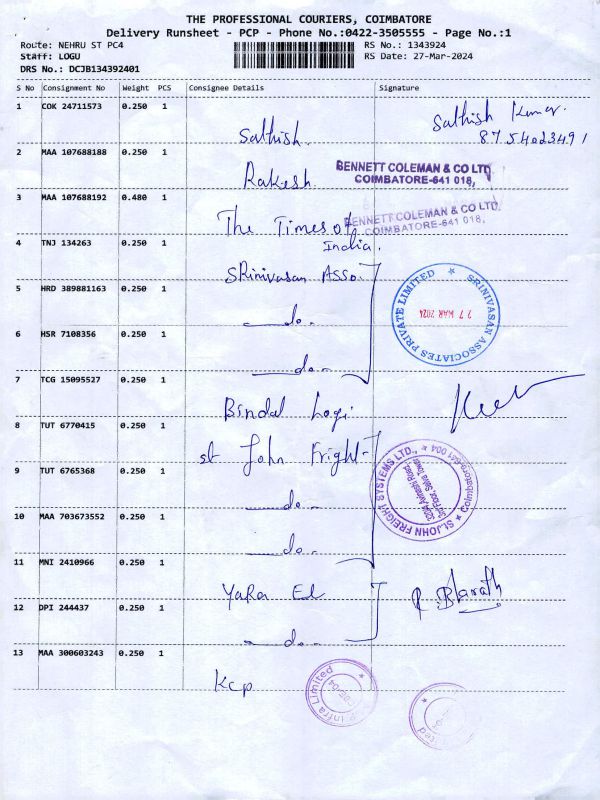 THE PROFESSIONAL COURIERS, COIMBATORE
Delivery Runsheet - PCP - Phone No.:0422-3505555 - Page No.:1
Route: NEHRU ST PC4
RS No.: 1343924
Staff: LOGU
RS Date: 27-Mar-2024
DRS No.: DCJB134392401
S No Consignment No Weight PCS Consignee Details Signature
1 COK 24711573 0.250 1 Sathish. Sathish Kumar.
8754023491
2 MAA 107688188 0.250 1 Rakesh. BENNETT COLEMAN & CO LTD
COIMBATORE-641 018,
3 MAA 107688192 0.480 1 The Times of India. BENNETT COLEMAN & CO LTD.
COIMBATORE-641 018,
4 TNJ 134263 0.250 1 SRinivasan Asso.
SRINIVASAN ASSOCIATES PRIVATE LIMITED
27 MAR 2024
5 HRD 389881163 0.250 1 do.
6 HSR 7108356 0.250 1 do.
7 TCG 15095527 0.250 1 Bindal Logi
8 TUT 6770415 0.250 1 St John Fright
ST.JOHN FREIGHT SYSTEMS LTD., Coimbatore-641 004
9 TUT 6765368 0.250 1 do.
10 MAA 703673552 0.250 1 do.
11 MNI 2410966 0.250 1 YaRa El R. Bharath
12 DPI 244437 0.250 1 do.
13 MAA 300603243 0.250 1 Kcp
Infra Limited
CBE-04